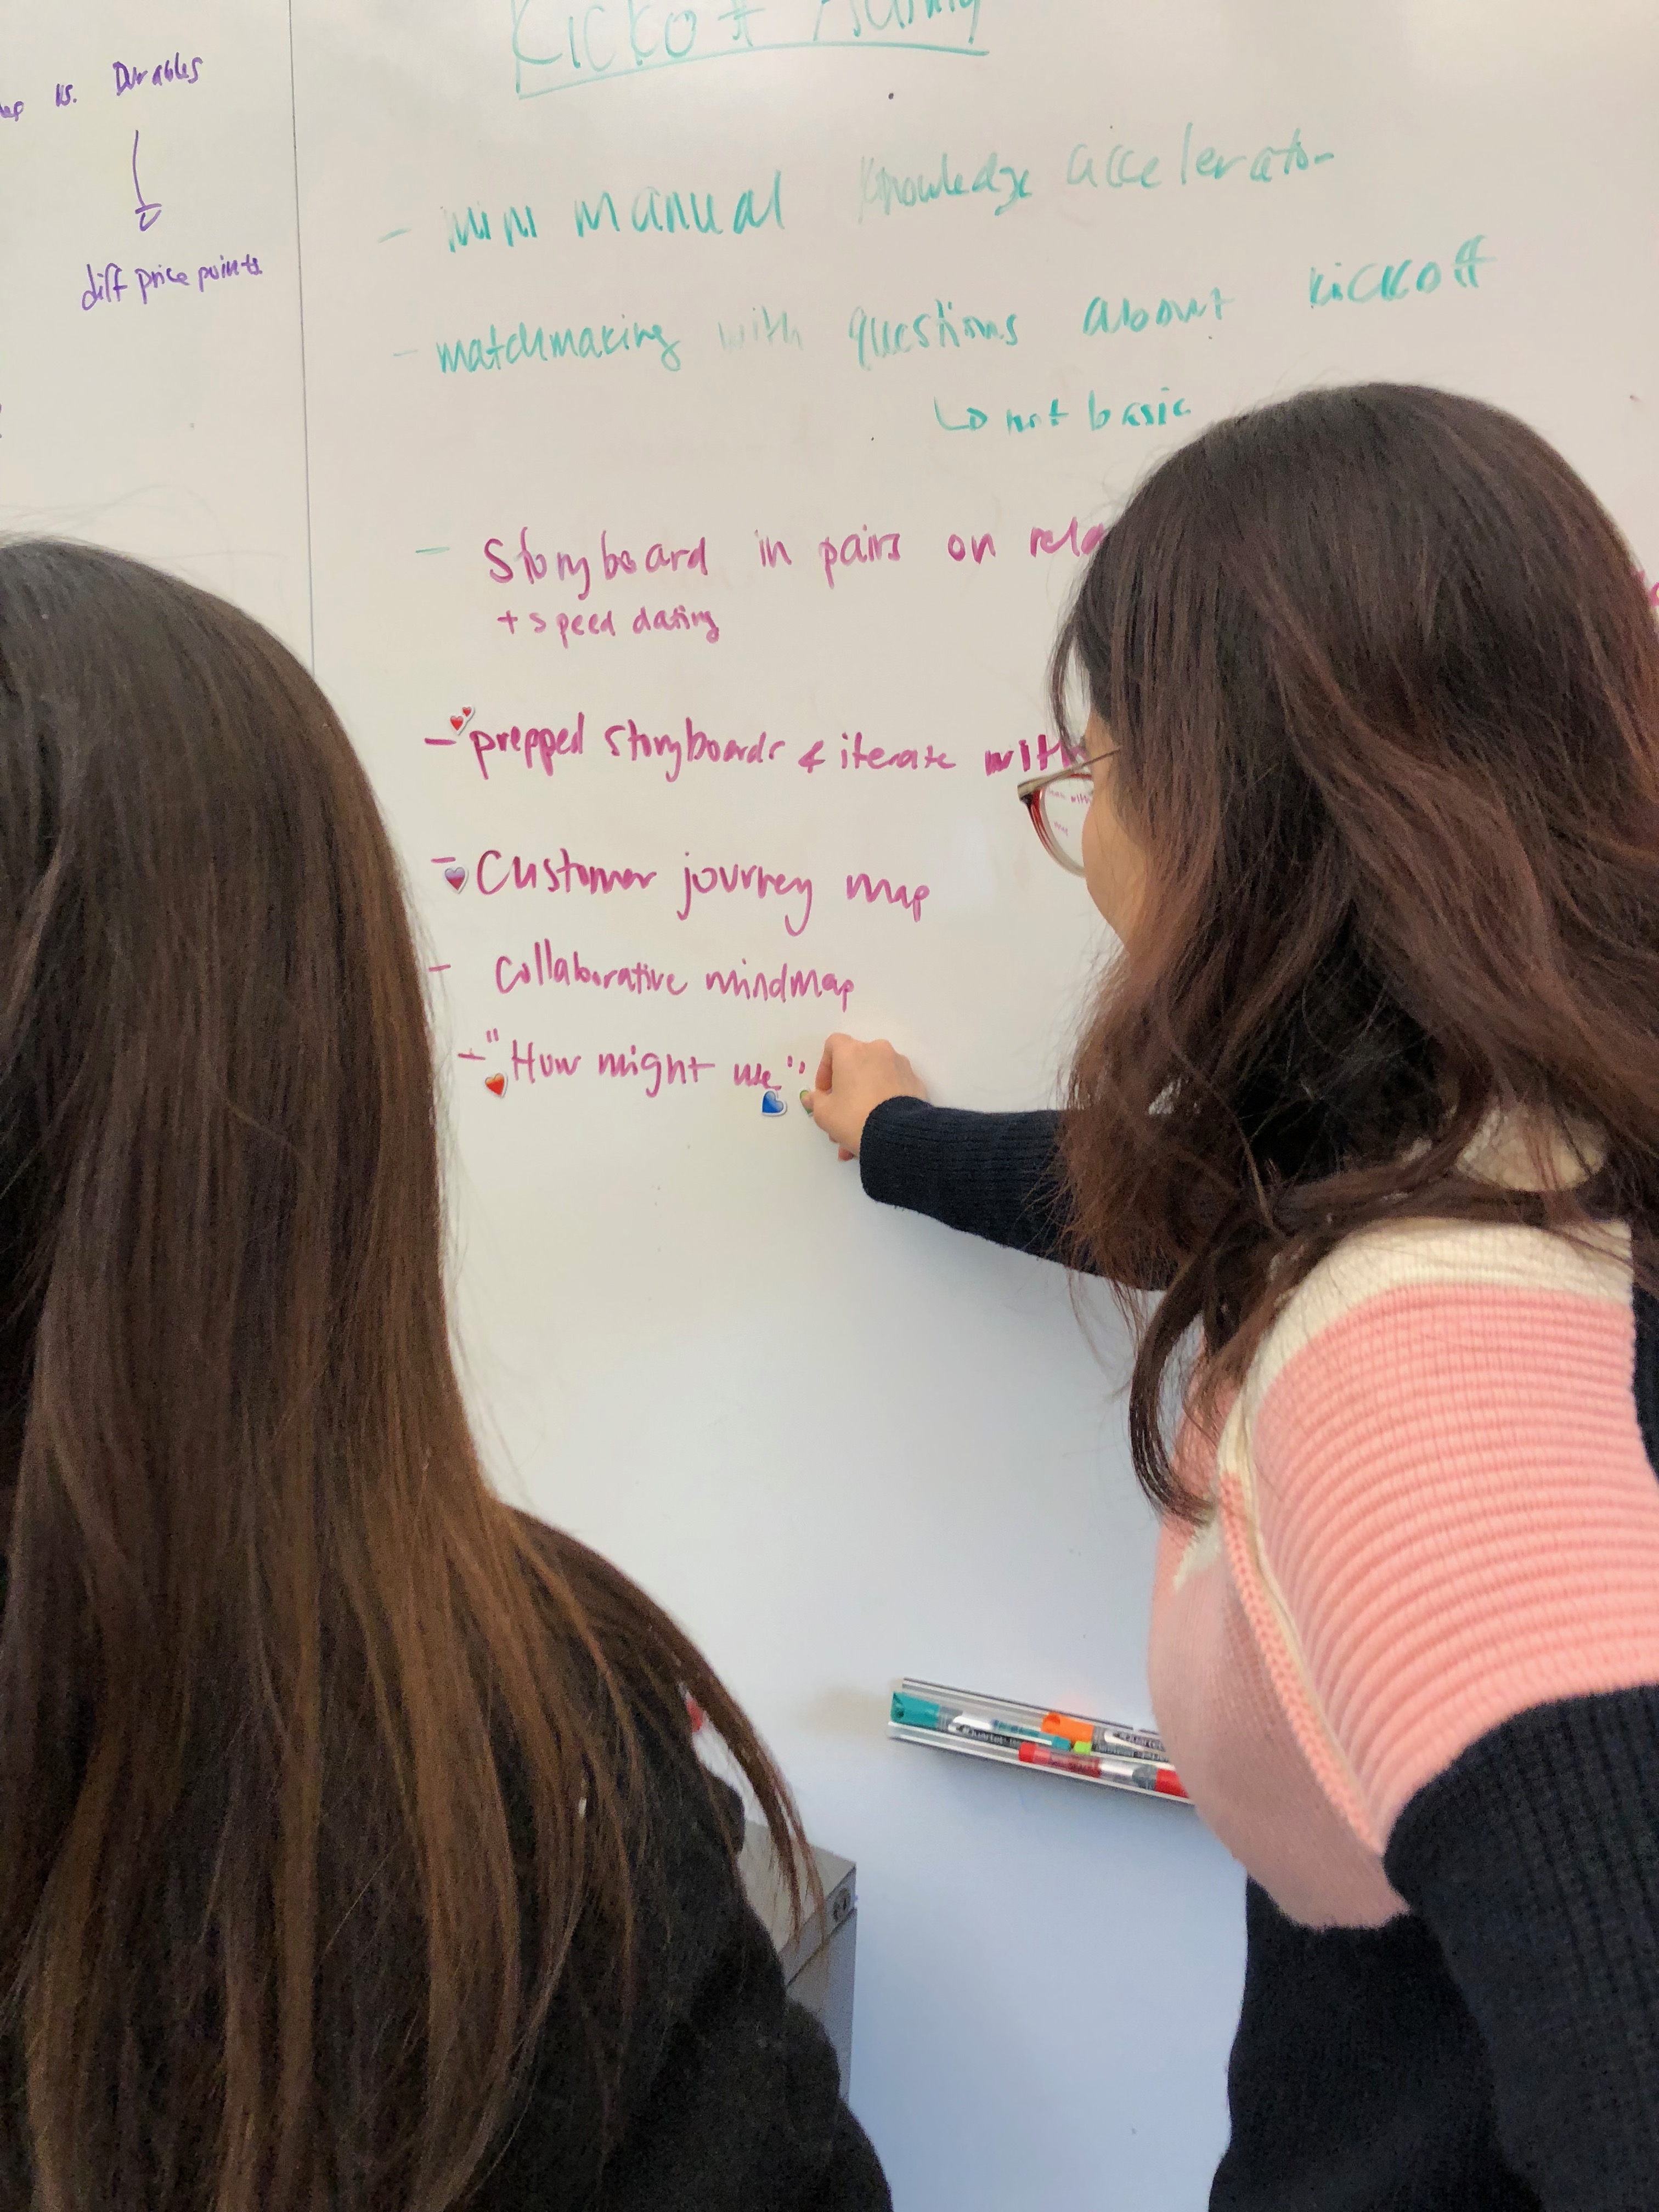 vs. Durables
diff price points
Kickoff Activity
- mini manual knowledge accelerator
- matchmaking with questions about kickoff
↳ not basic
- Storyboard in pairs on rela
+ speed dating
- prepped storyboards & iterate with
- Customer journey map
- collaborative mindmap
- "How might we"
Quartet